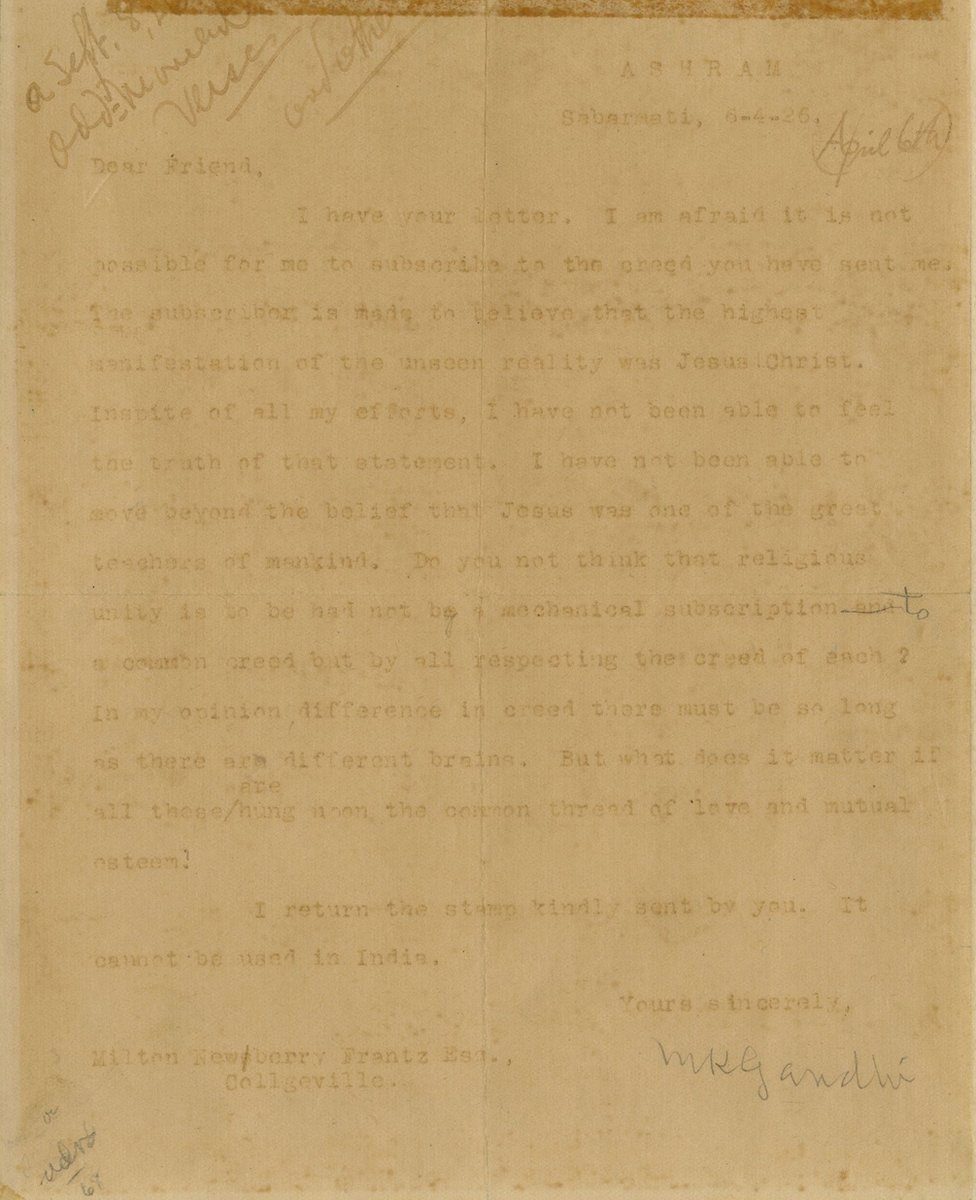 a Sept. 8,
add
Verse
and other
ASHRAM
Sabarmati, 6-4-26.
(April 6th)
Dear Friend,
I have your letter. I am afraid it is not
possible for me to subscribe to the creed you have sent me.
The subscriber is made to believe that the highest
manifestation of the unseen reality was Jesus Christ.
Inspite of all my efforts, I have not been able to feel
the truth of that statement. I have not been able to
move beyond the belief that Jesus was one of the great
teachers of mankind. Do you not think that religious
unity is to be had not by a mechanical subscription and to
a common creed but by all respecting the creed of each ?
In my opinion difference in creed there must be so long
as there are different brains. But what does it matter if
are
all these/hung upon the common thread of love and mutual
esteem!
I return the stamp kindly sent by you. It
cannot be used in India.
Yours sincerely,
MKGandhi
Milton New/berry Frantz Esq.,
Collgeville.